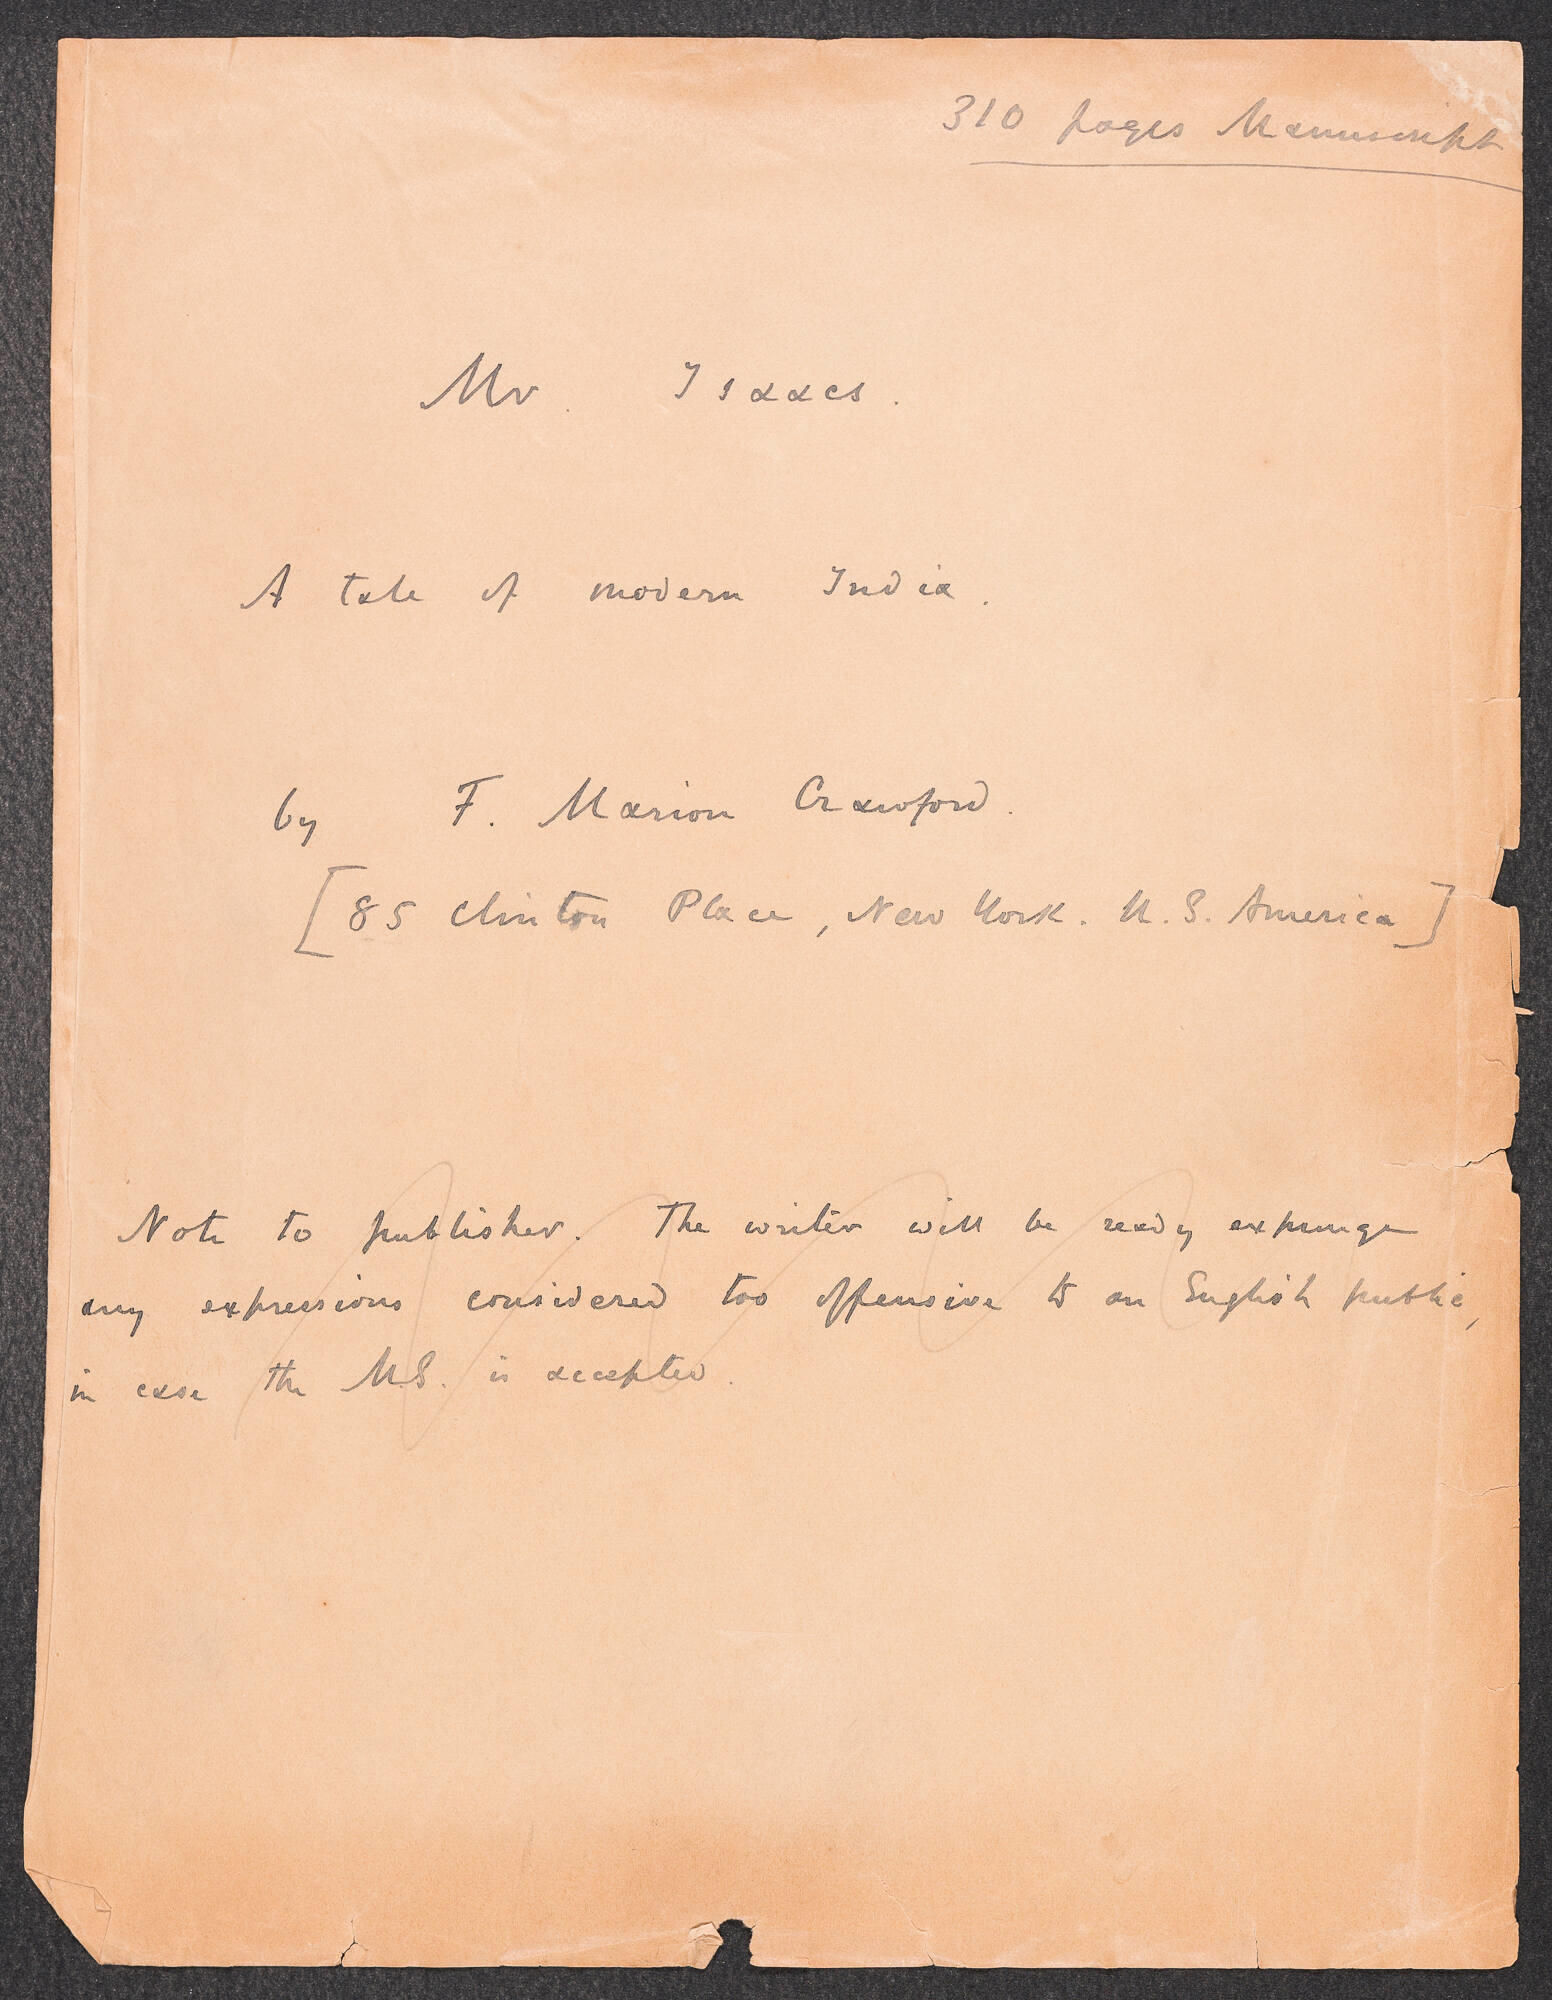 310 pages Manuscript
Mr. Isaacs.
A tale of modern India.
by F. Marion Crawford.
[85 Clinton Place, New York. U.S. America]
Note to publisher. The writer will be ready expunge
any expressions considered too offensive to an English public,
in case the M.S. is accepted.